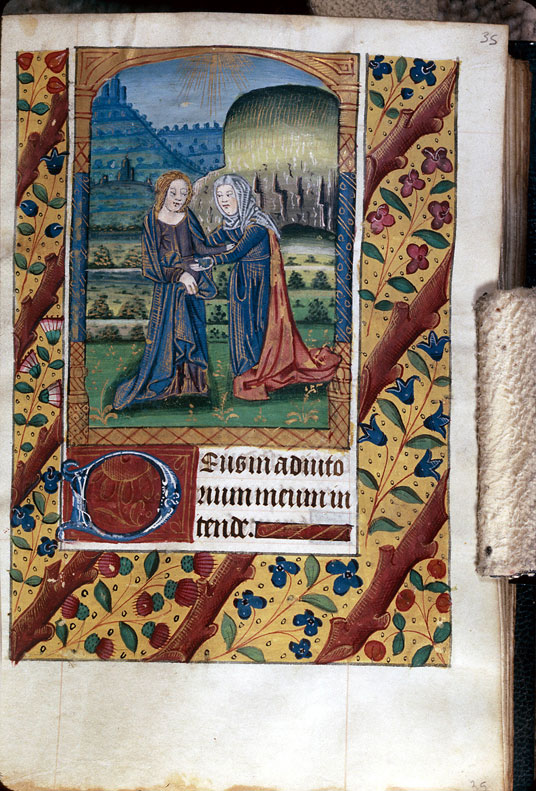 35
Deus in adiuto
rium meum in
tende.
35